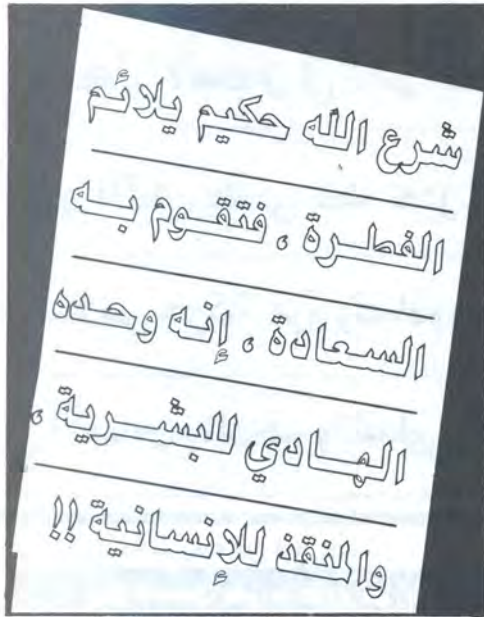 شرع الله حكيم يلائم
الفطرة ، فتقوم به
السعادة ، إنه وحده
الهادي للبشرية ،
والمنقذ للإنسانية !!